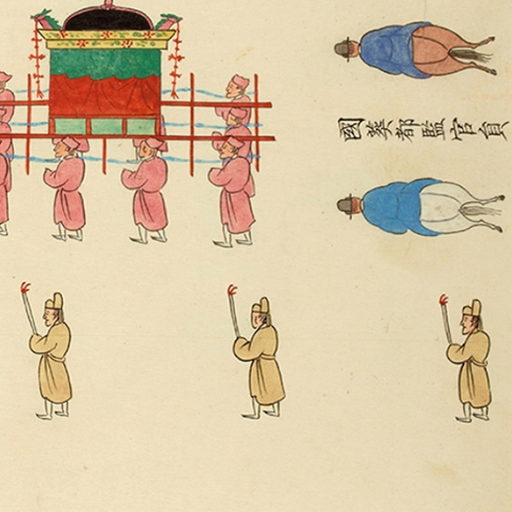 國葬都監官員